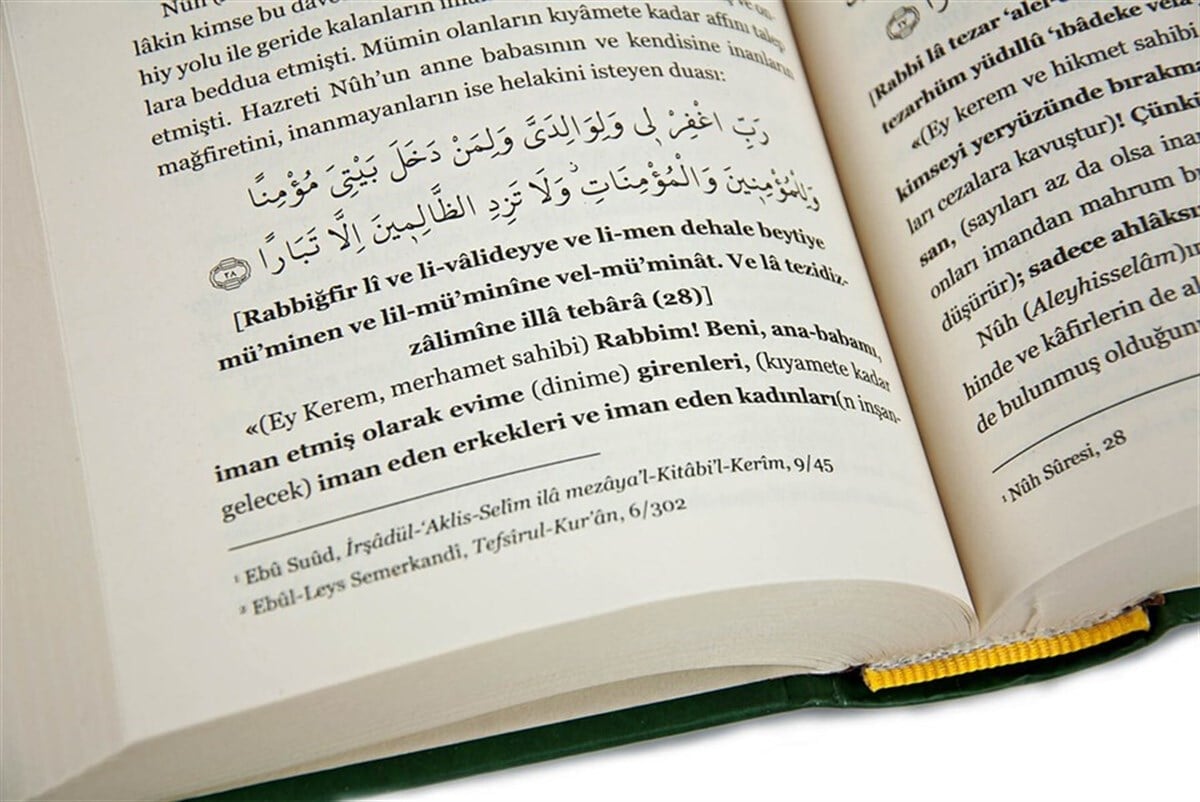 Nûh
lâkin kimse bu
hiy yolu ile geride kalanların
lara beddua etmişti. Mümin olanların kıyâmete kadar affını talep
etmişti. Hazreti Nûh’un anne babasının ve kendisine inananların
mağfiretini, inanmayanların ise helakini isteyen duası:
رَبِّ اغْفِرْ لٖى وَلِوَالِدَىَّ وَلِمَنْ دَخَلَ بَيْتِىَ مُؤْمِنًا
وَلِلْمُؤْمِنٖينَ وَالْمُؤْمِنَاتِۜ وَلَا تَزِدِ الظَّالِمٖينَ اِلَّا تَبَارًا ﴿٢٨﴾
[Rabbiğfir lî ve li-vâlideyye ve li-men dehale beytiye
mü’minen ve lil-mü’minîne vel-mü’minât. Ve lâ tezidiz-
zâlimîne illâ tebârâ (28)]
«(Ey Kerem, merhamet sahibi) Rabbim! Beni, ana-babamı,
iman etmiş olarak evime (dinime) girenleri, (kıyamete kadar
gelecek) iman eden erkekleri ve iman eden kadınları(n inşan-
¹ Ebû Suûd, İrşâdül-‘Aklis-Selîm ilâ mezâya’l-Kitâbi’l-Kerîm, 9/45
² Ebûl-Leys Semerkandî, Tefsîrul-Kur’ân, 6/302
[Rabbi lâ tezar
tezarhüm yüdıllû ‘ıbâdeke
«(Ey kerem ve hikmet sahibi
kimseyi yeryüzünde
ları cezalara kavuştur)! Çünki
san, (sayıları az da olsa
onları imandan mahrum
düşürür); sadece
Nûh (Aleyhisselâm)
hinde ve kâfirlerin de
de bulunmuş
¹ Nûh Sûresi, 28